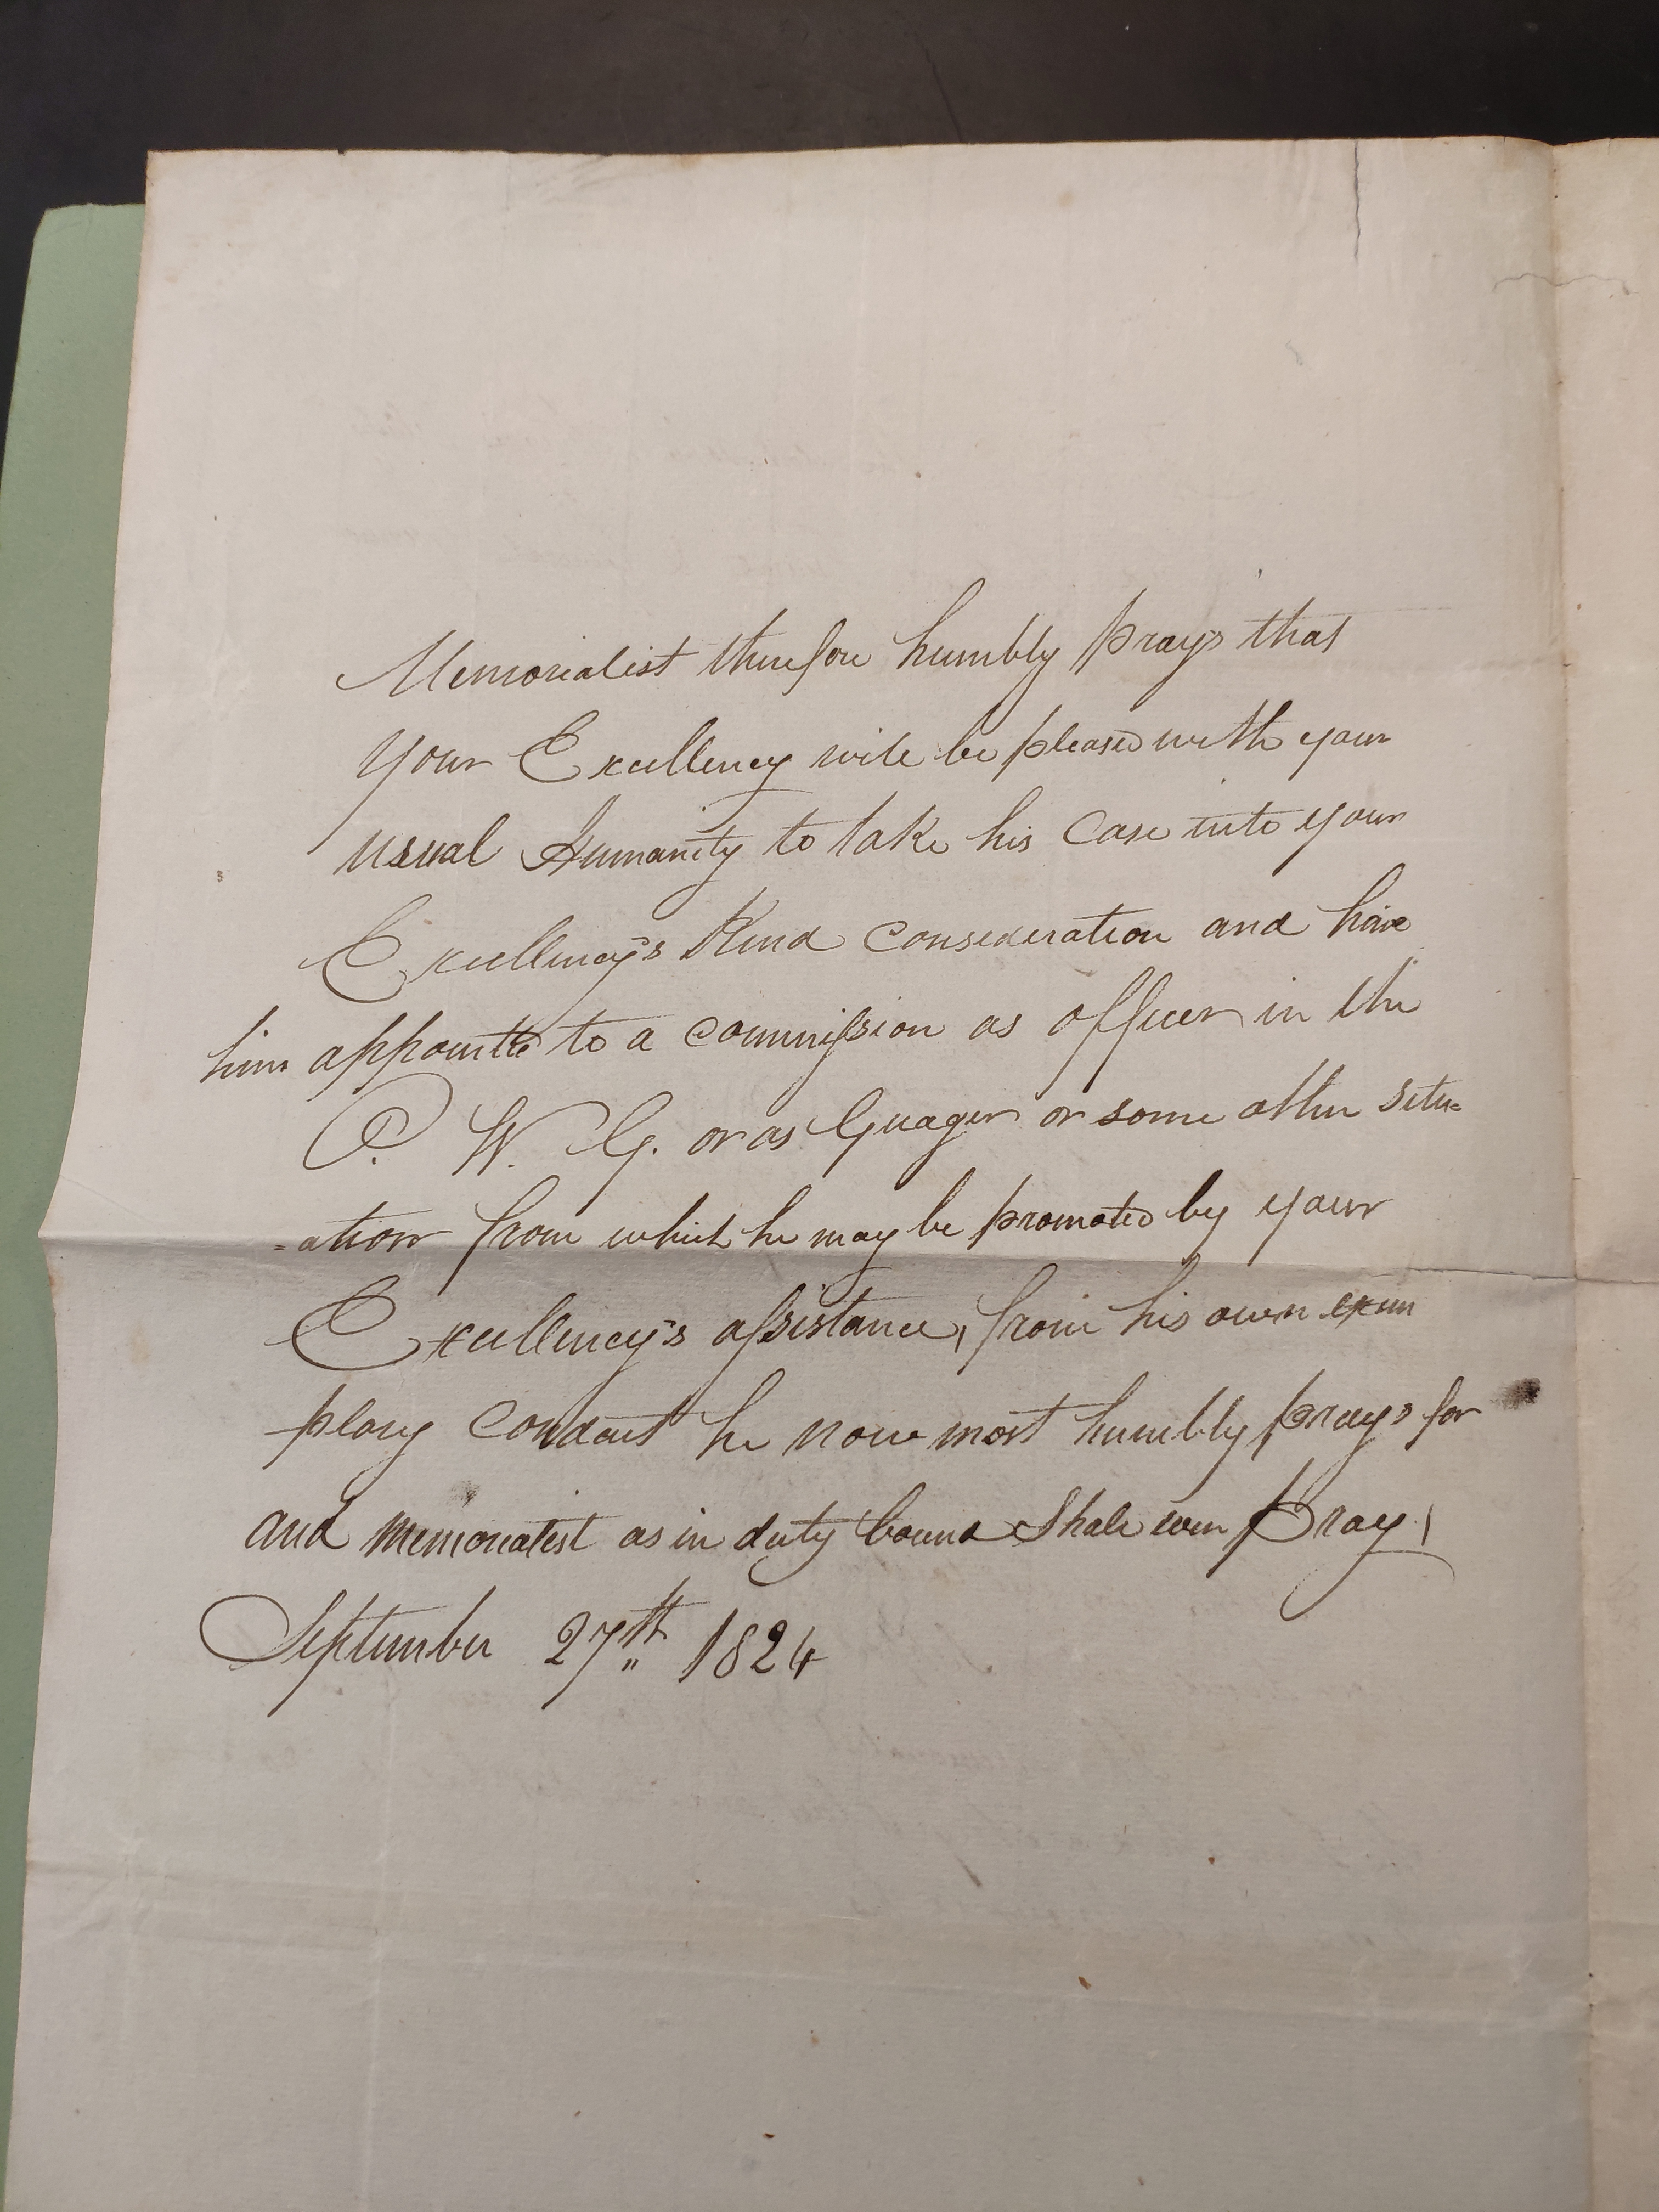 Memorialist therefore humbly prays that
your Excellency will be pleased with your
usual Humanity to take his Case into your
Excellency's Kind Consideration and have
him appointed to a commission as officer in the
P. W. G. or as Guager or some other situ=
=ation from which he may be promoted by your
Excellency's assistance, from his own exem
plary Conduct he now most humbly prays for
and memorialist as in duty bound Shall ever Pray
September 27th 1824